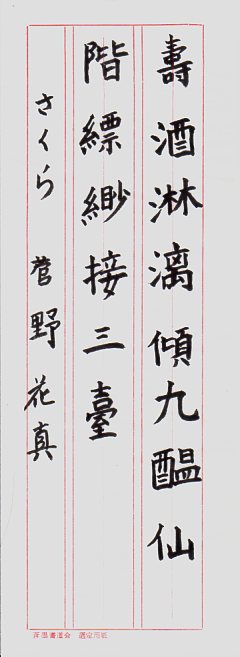 壽酒淋漓傾九醖仙
階縹緲接三臺
さくら 菅野花真
書道会 選定用紙